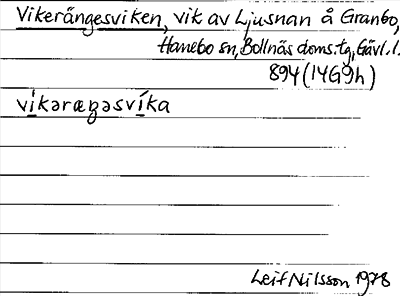 Vikerängesviken, vik av Ljusnan å Granbo,
Hanebo sn, Bollnäs doms.tg, Gävl. l.
894 (14G9h)
vi̲kəræŋəsví̲ka
Leif Nilsson 1978